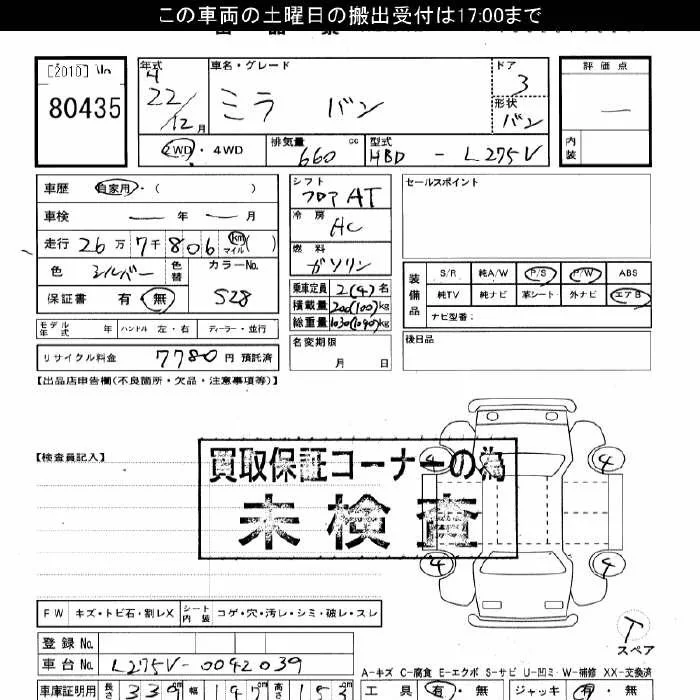 この車両の土曜日の搬出受付は17:00まで
[2010]
80435
年式 車名・グレード ドア 評価点
22/12月 ミラ バン 3 ー
形状 バン
2WD・4WD 排気量 660 cc 型式 HBD - L275V
内装
車歴 自家用・( )
シフト フロア AT
セールスポイント
車検 ー年 ー月
冷房 AC
走行 26万7千806 km マイル ( )
燃料 ガソリン
色 シルバー 色替 カラーNo. S28
装備品 S/R 純A/W P/S P/W ABS
保証書 有・無
乗車定員 2(4)名
純TV 純ナビ 革シート 外ナビ エアB
積載量 200(100)kg
ナビ型番:
モデル年式 年 ハンドル 左・右 ディーラー・並行
総重量 1030(1090)kg
後日品
リサイクル料金 7780 円 預託済
名変期限 月 日
【出品店申告欄(不良箇所・欠品・注意事項等)】
【検査員記入】
買取保証コーナーの為
未検査
4 4
4 4
FW キズ・トビ石・割レX シート内装 コゲ・穴・汚レ・シミ・破レ・スレ
T
スペア
登録 No.
車台 No. L275V-0042039
A-キズ C-腐食 E-エクボ S-サビ U-凹ミ W-補修 XX-交換済
車庫証明用 長さ 339 cm 幅 147 cm 高さ 153 cm
工具 有・無 ジャッキ 有・無